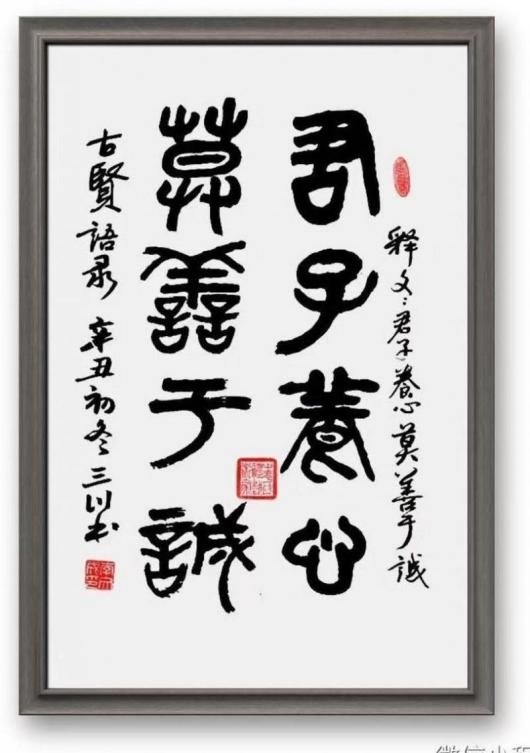 释文:君子養心莫善于誠
君子養心
莫善于誠
古賢語录 辛丑初冬三川书